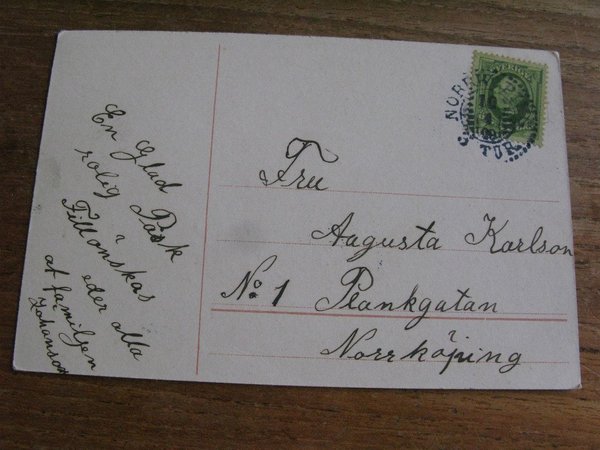 En Glad
rolig Påsk
i
Tillönskas
eder alla
af familjen
Johanson
Fru
Augusta Karlson
No 1 Plankgatan
Norrköping
SVERIGE
NORR
TOR